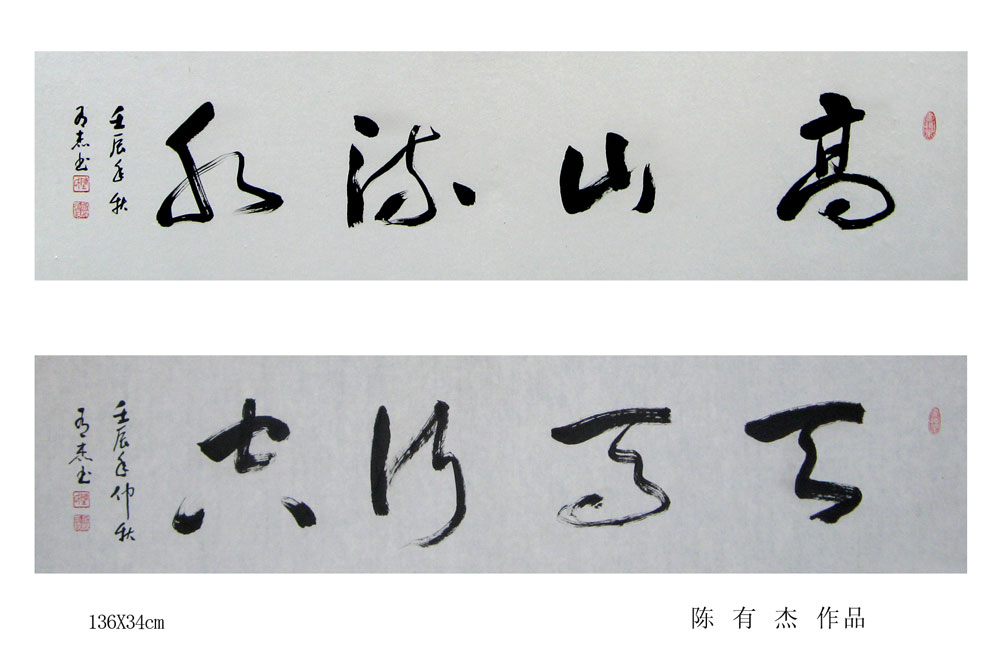 高山流水
壬辰年秋
有杰书
天马行空
壬辰年仲秋
有杰书
136X34cm
陈有杰 作品